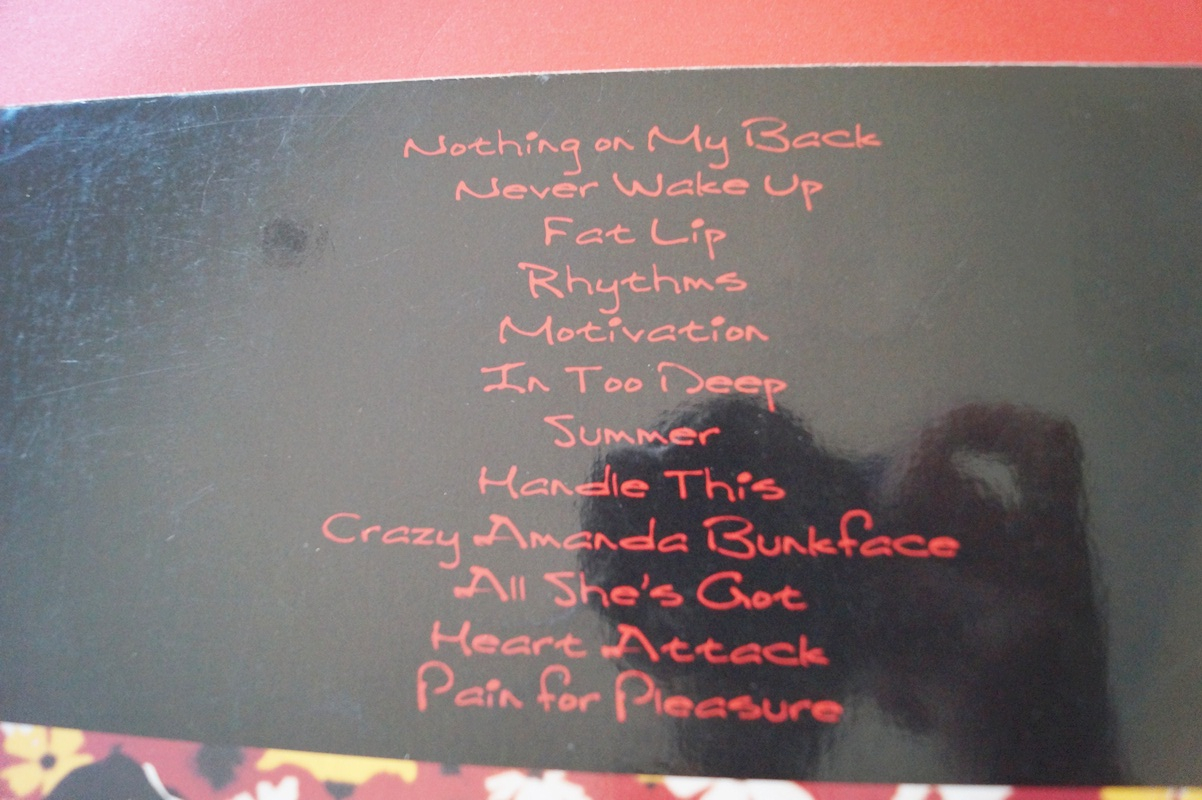 Nothing on My Back
Never Wake Up
Fat Lip
Rhythms
Motivation
In Too Deep
Summer
Handle This
Crazy Amanda Bunkface
All She's Got
Heart Attack
Pain for Pleasure